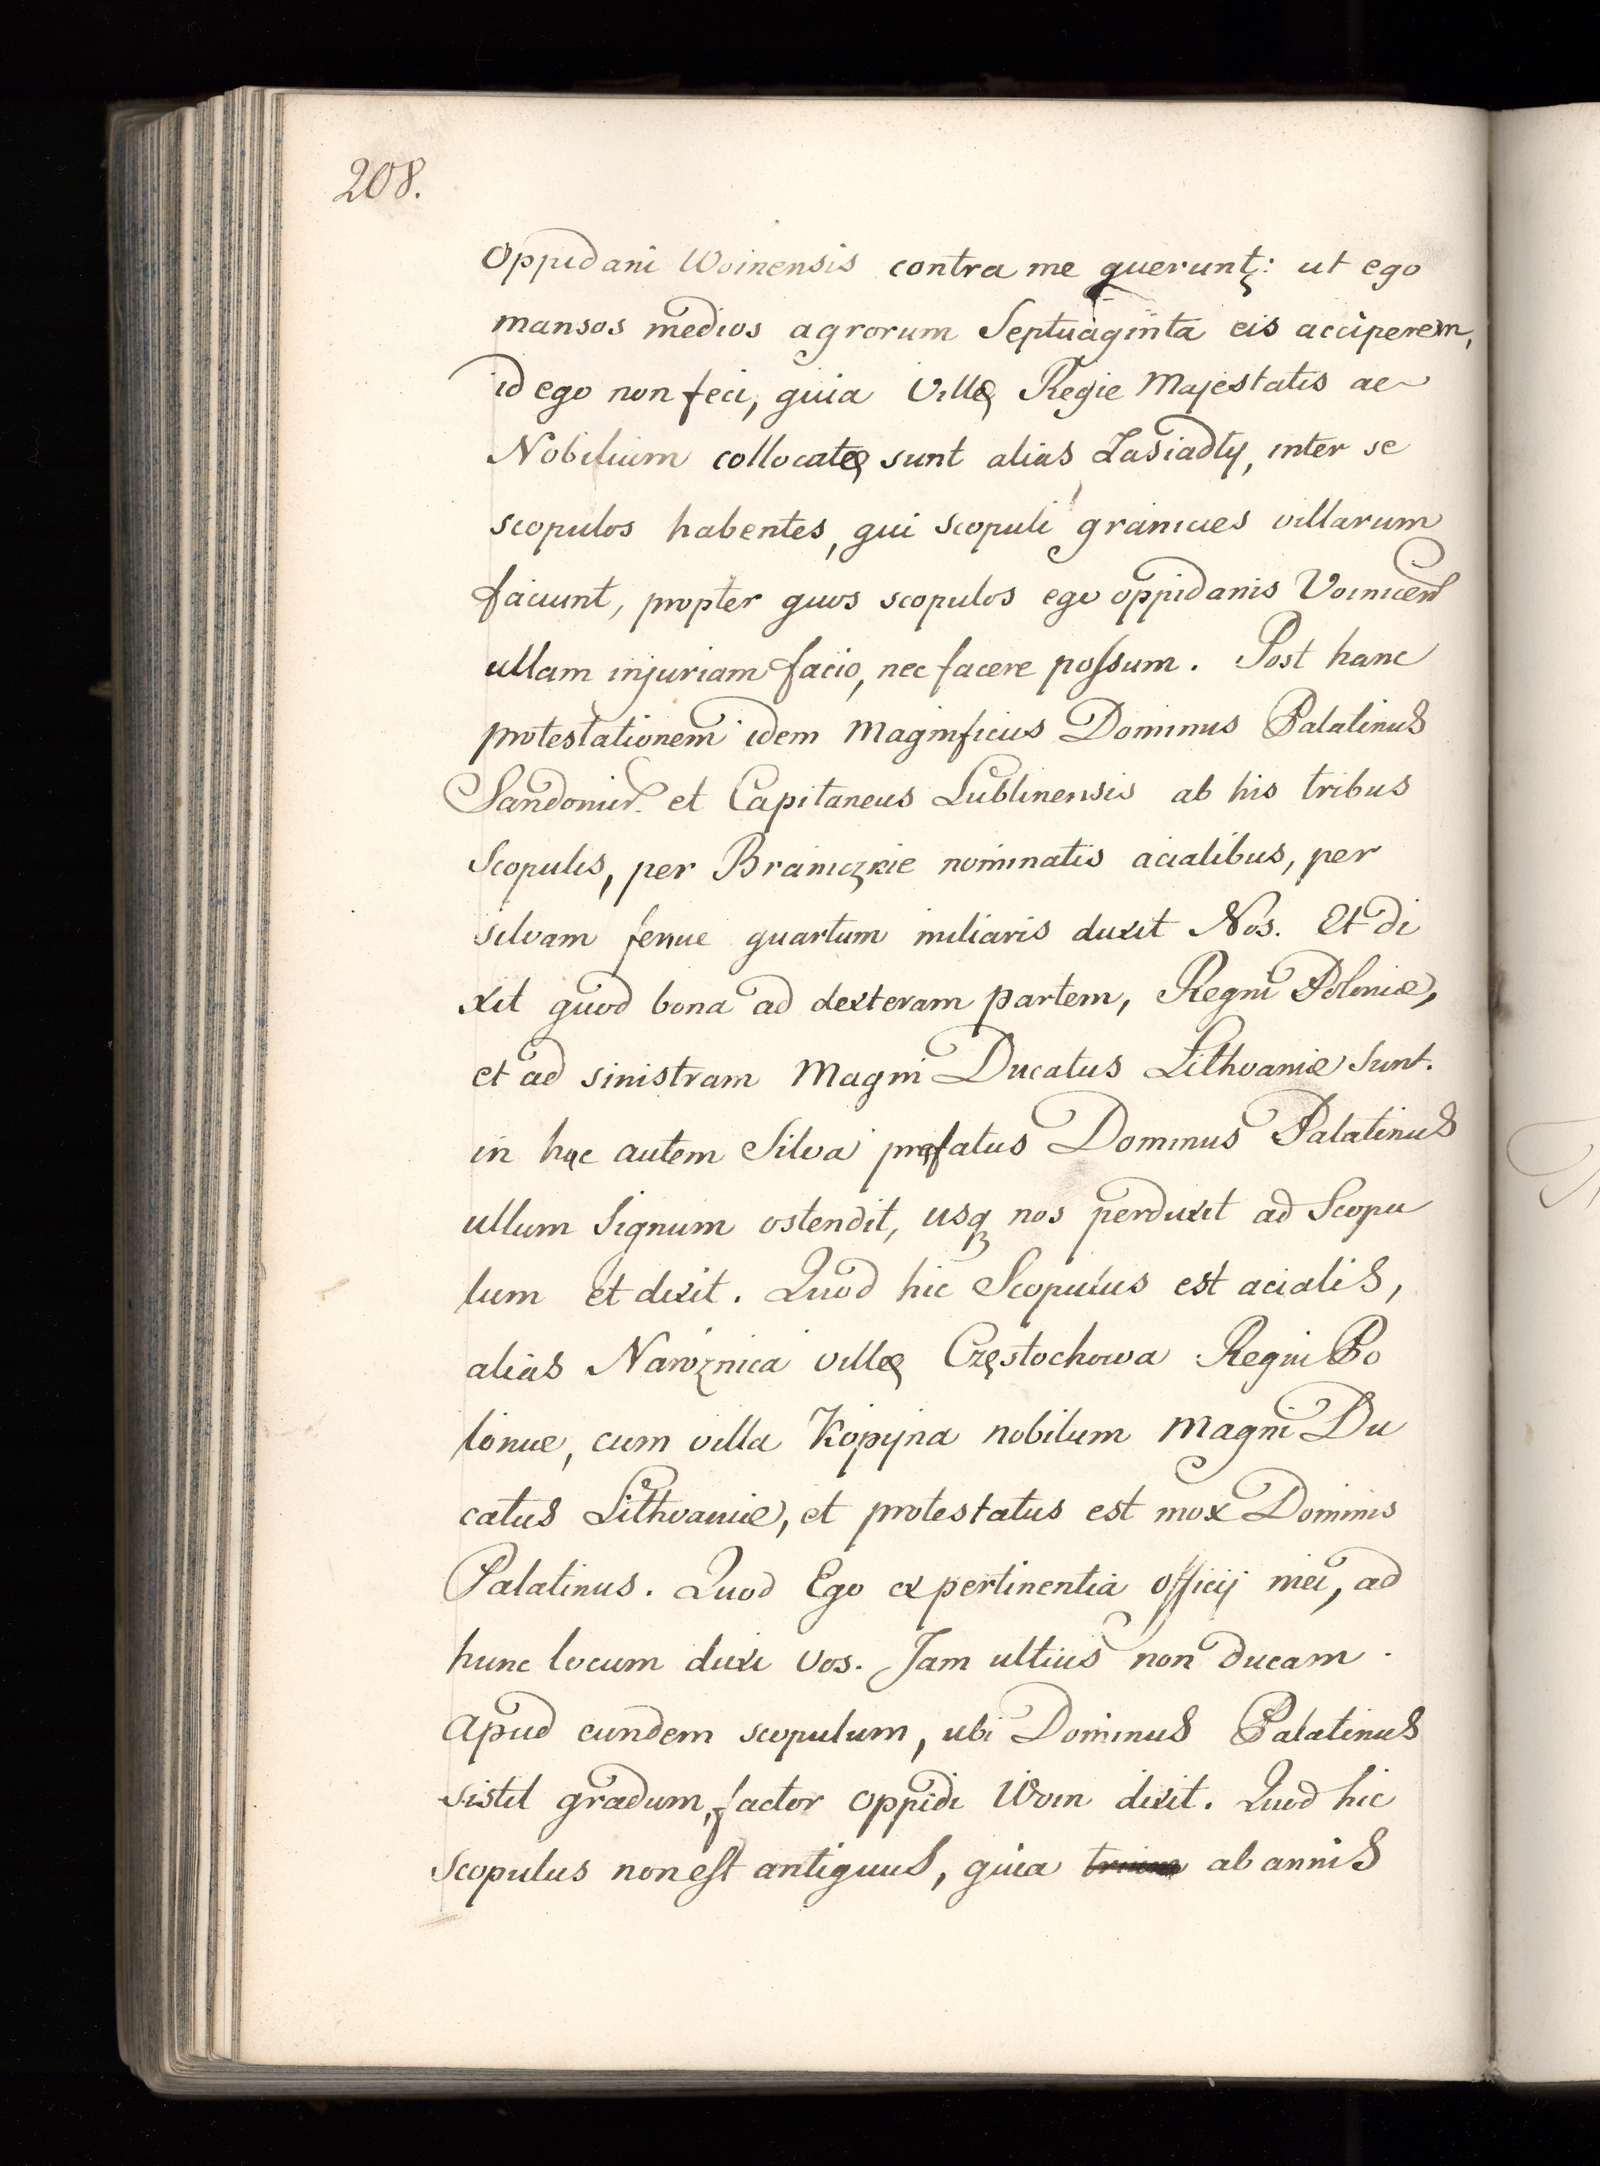 208.
Oppidani Woinensis contra me querunt: ut ego
mansos medios agrorum Septuaginta eis acciperem,
id ego non feci, quia Villę Regie Majestatis ac
Nobilium collocatę sunt alias Zasiadly, inter se
scopulos habentes, qui scopuli granicies villarum
faciunt, propter quos scopulos ego oppidanis Voinicen
ullam injuriam facio, nec facere possum. Post hanc
protestationem idem Magnificus Dominus Palatinus
Sandomir. et Capitaneus Lublinensis ab his tribus
Scopulis, per Braniczkie nominatis acialibus, per
silvam ferme quartum miliaris duxit Nos. Et di
xit quod bona ad dexteram partem, Regni Poloniæ,
et ad sinistram Magni Ducatus Lithvaniæ sunt.
in hac autem Silva præfatus Dominus Palatinus
ullum Signum ostendit, usq nos perduxit ad Scopu
lum et dixit. Quod hic Scopulus est acialis,
alias Narożnica villę Częstochowa Regni Po
loniæ, cum villa Kopyna nobilum Magni Du
catus Lithvaniæ, et protestatus est mox Dominis
Palatinus. Quod Ego ex pertinentia officij mei, ad
hunc locum duxi vos. Jam ultius non ducam.
Apud eundem scopulum, ubi Dominus Palatinus
sistit gradum, factor oppidi Woin dixit. Quod hic
scopulus non est antiquus, quia ab annis